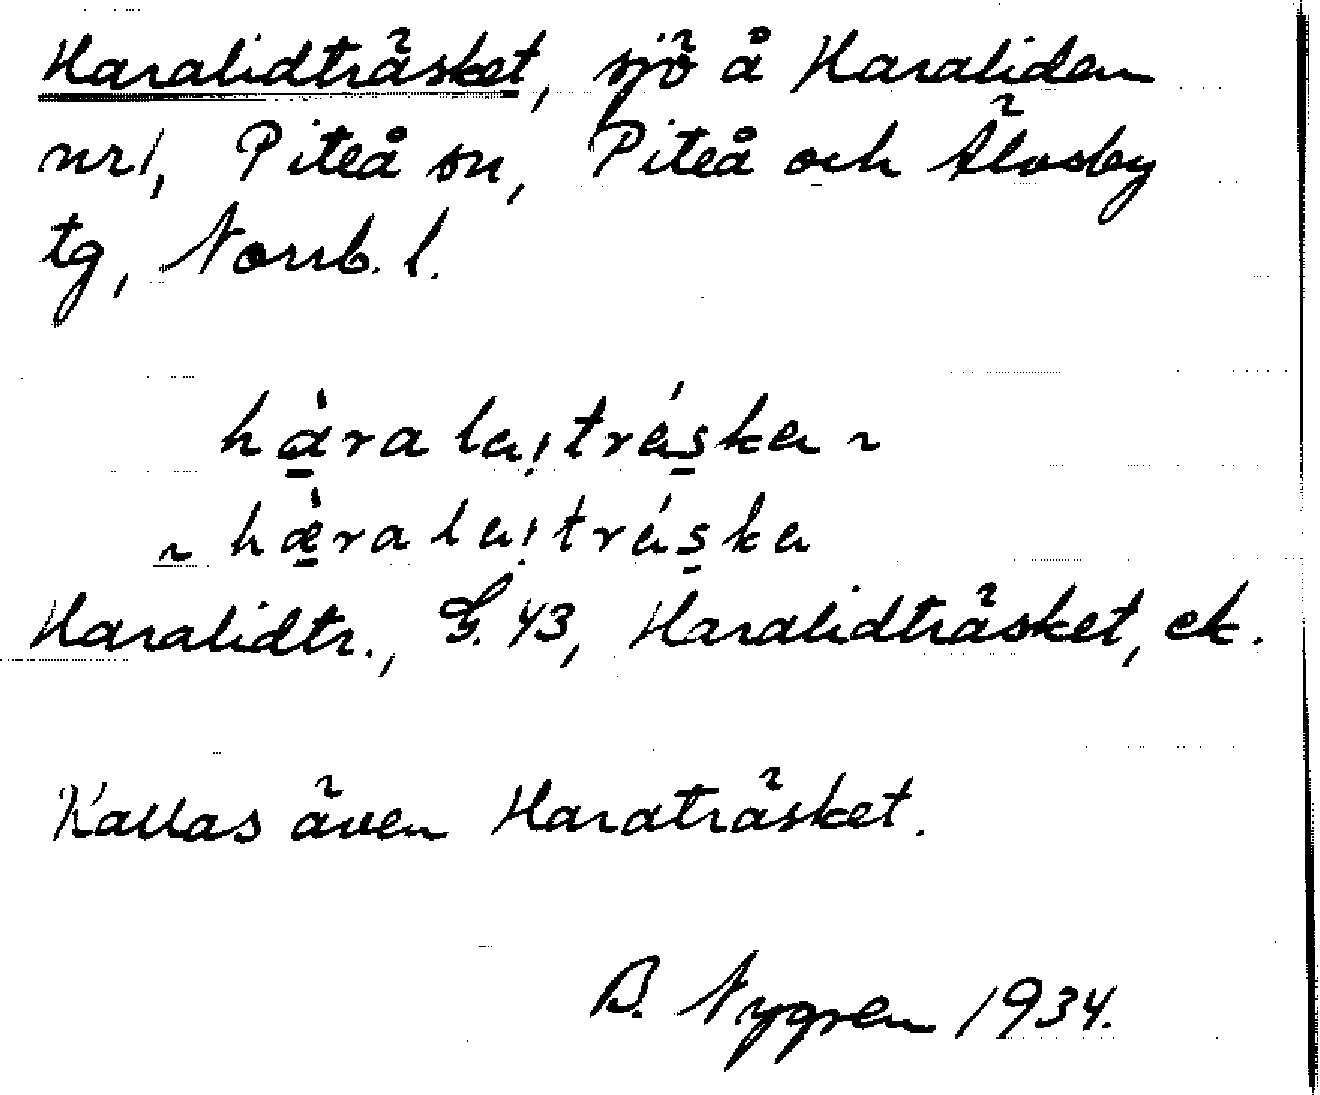 Haralidträsket, sjö å Haraliden
nr 1, Piteå sn, Piteå och Älvsby
tg, Norrb. l.
hàra la!tráska ~
~ hæ̀ra la!tráska
Haralidtr., G. 43, Haralidträsket, ek.
Kallas även Haraträsket.
B. Nygren 1934.